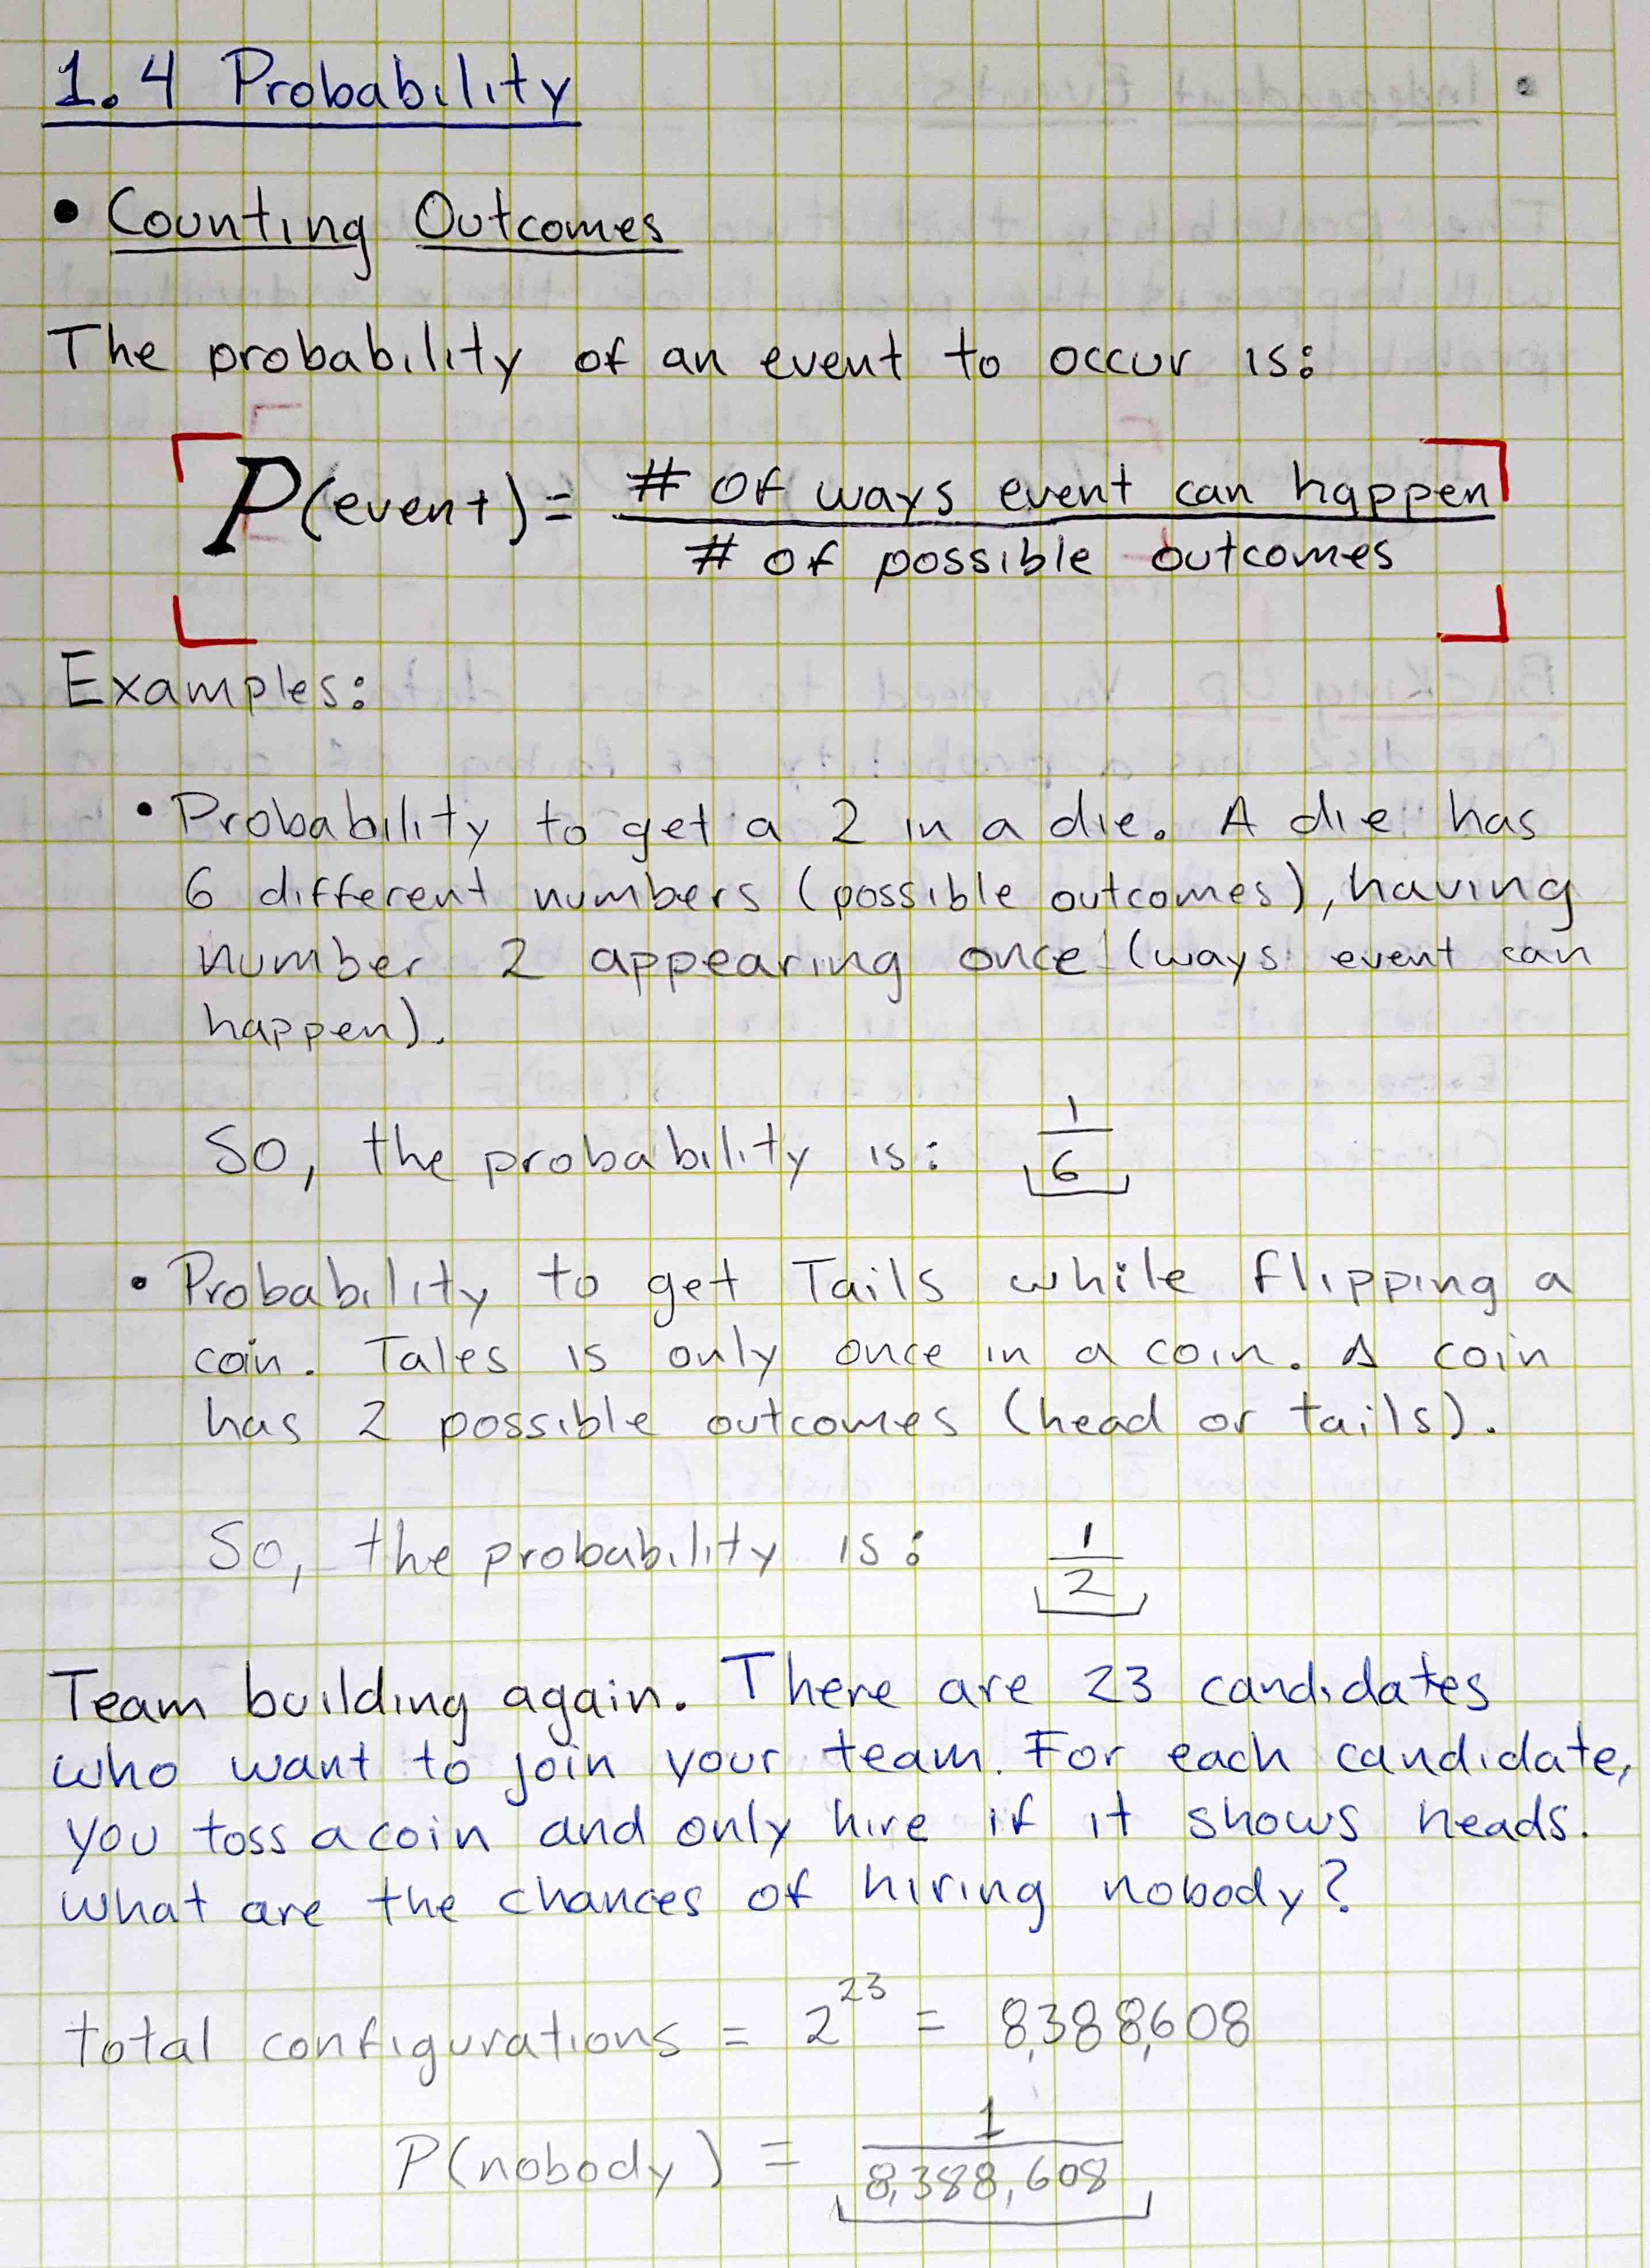 1.4 Probability
• Counting Outcomes
The probability of an event to occur is:
P(event) = # of ways event can happen
# of possible outcomes
Examples:
• Probability to get a 2 in a die. A die has
6 different numbers (possible outcomes), having
number 2 appearing once (ways event can
happen).
So, the probability is: 1/6
• Probability to get Tails while flipping a
coin. Tales is only once in a coin. A coin
has 2 possible outcomes (head or tails).
So, the probability is: 1/2
Team building again. There are 23 candidates
who want to join your team. For each candidate,
you toss a coin and only hire if it shows heads.
What are the chances of hiring nobody?
total configurations = 2^23 = 8,388,608
P(nobody) = 1/8,388,608